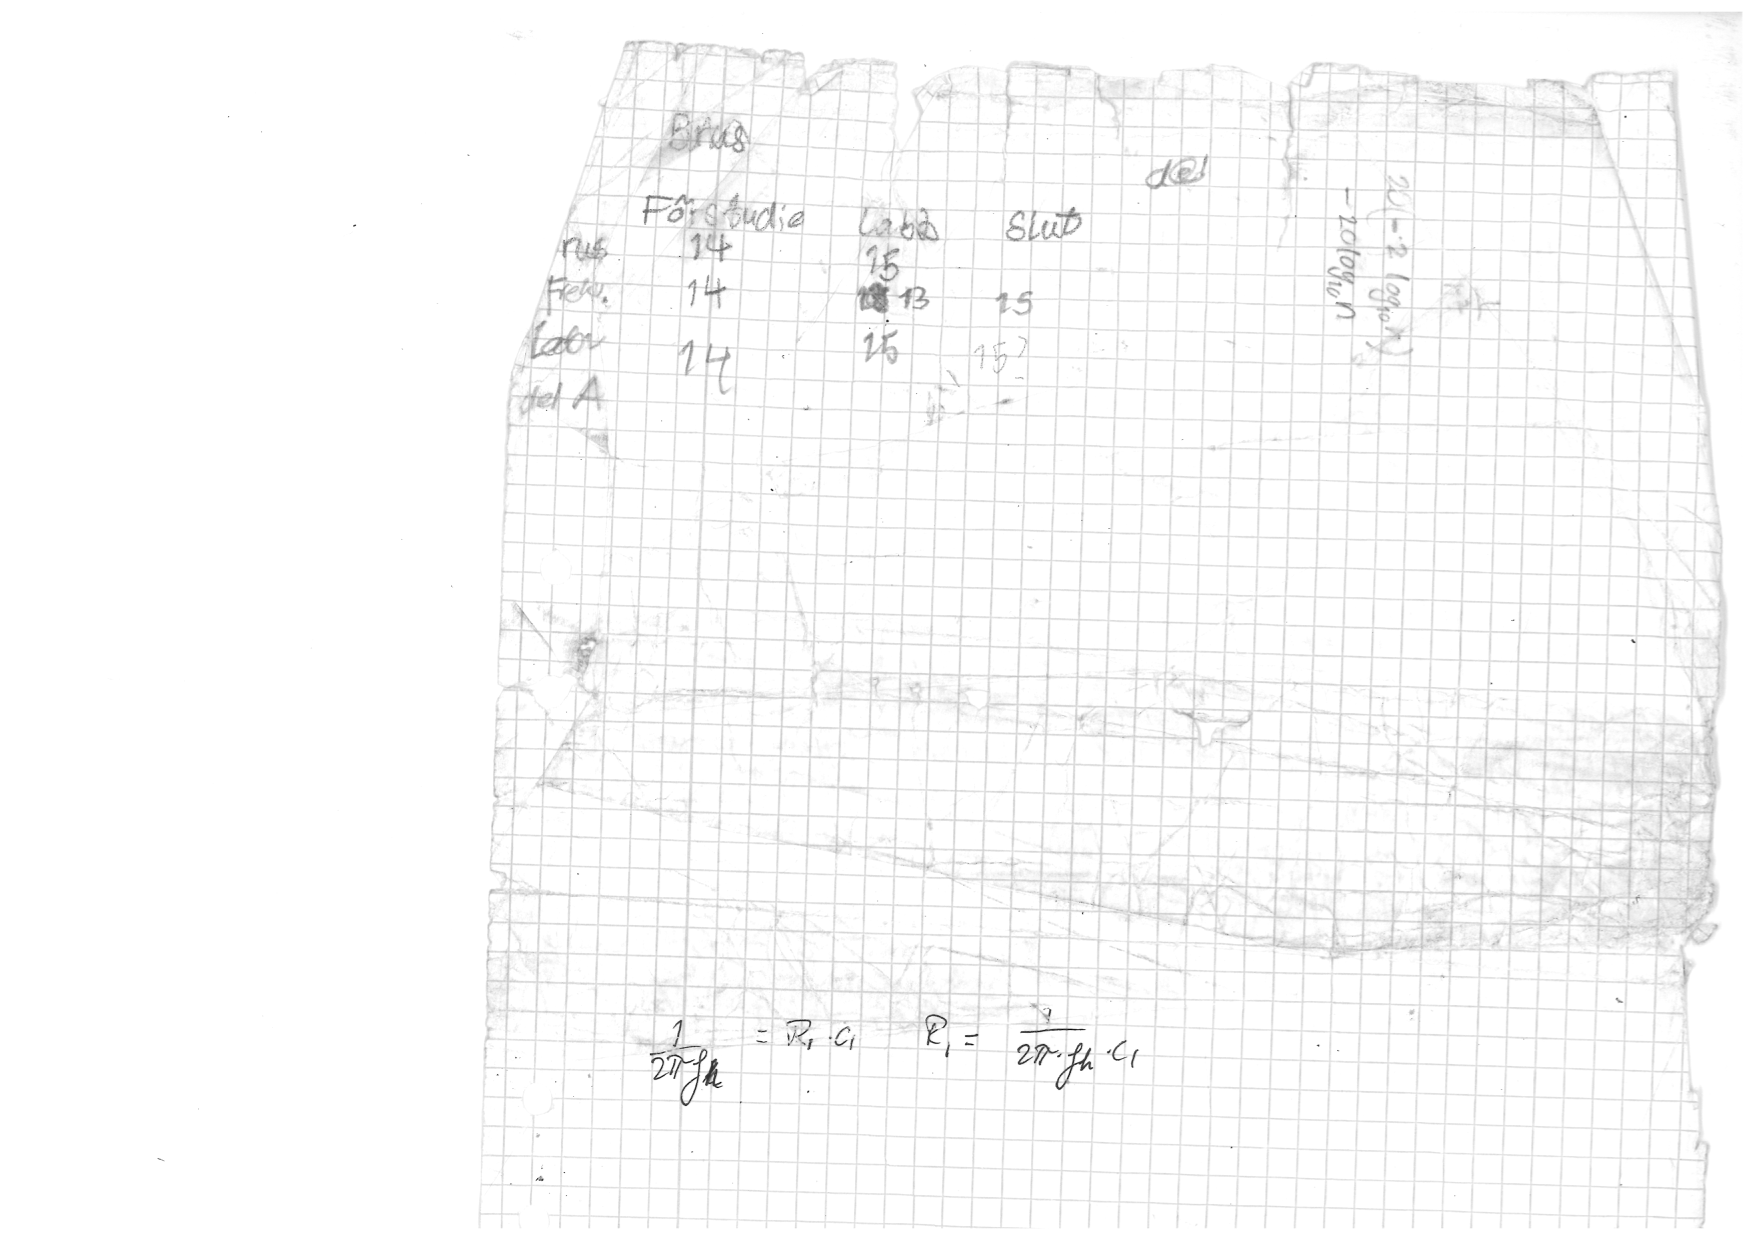 Brus
del
Förstudie Labb Slut
rus 14 15
Frekv. 14 13 15
Labb 14 15 15?
del A
20(-2 log₁₀ n)
-20 log₁₀ n
1/(2πfh) = R₁·C₁ R₁ = 1/(2π·fh·C₁)